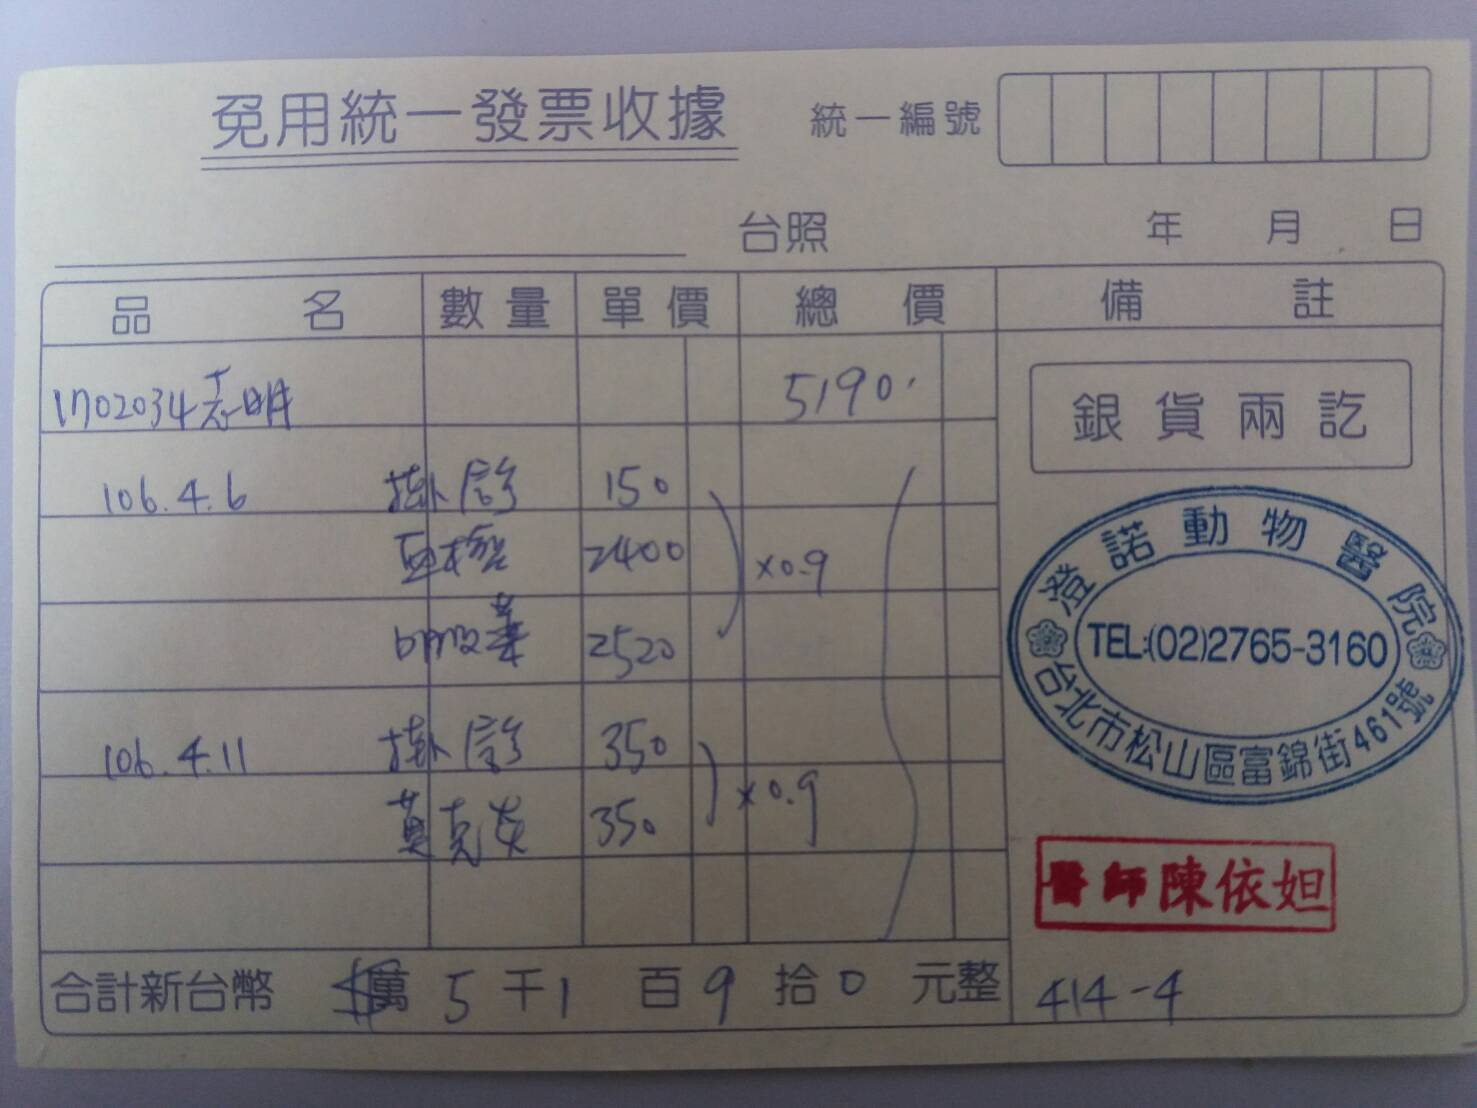 免用統一發票收據 統一編號
台照 年 月 日
品名 數量 單價 總價 備註
1702034志明 5190
銀貨兩訖
106.4.6 掛診 150
2400 ×0.9
2520
106.4.11 掛診 350
350 ×0.9
澄諾動物醫院
TEL:(02)2765-3160
台北市松山區富錦街461號
醫師陳依妲
合計新台幣 萬 5 千 1 百 9 拾 0 元整
414-4